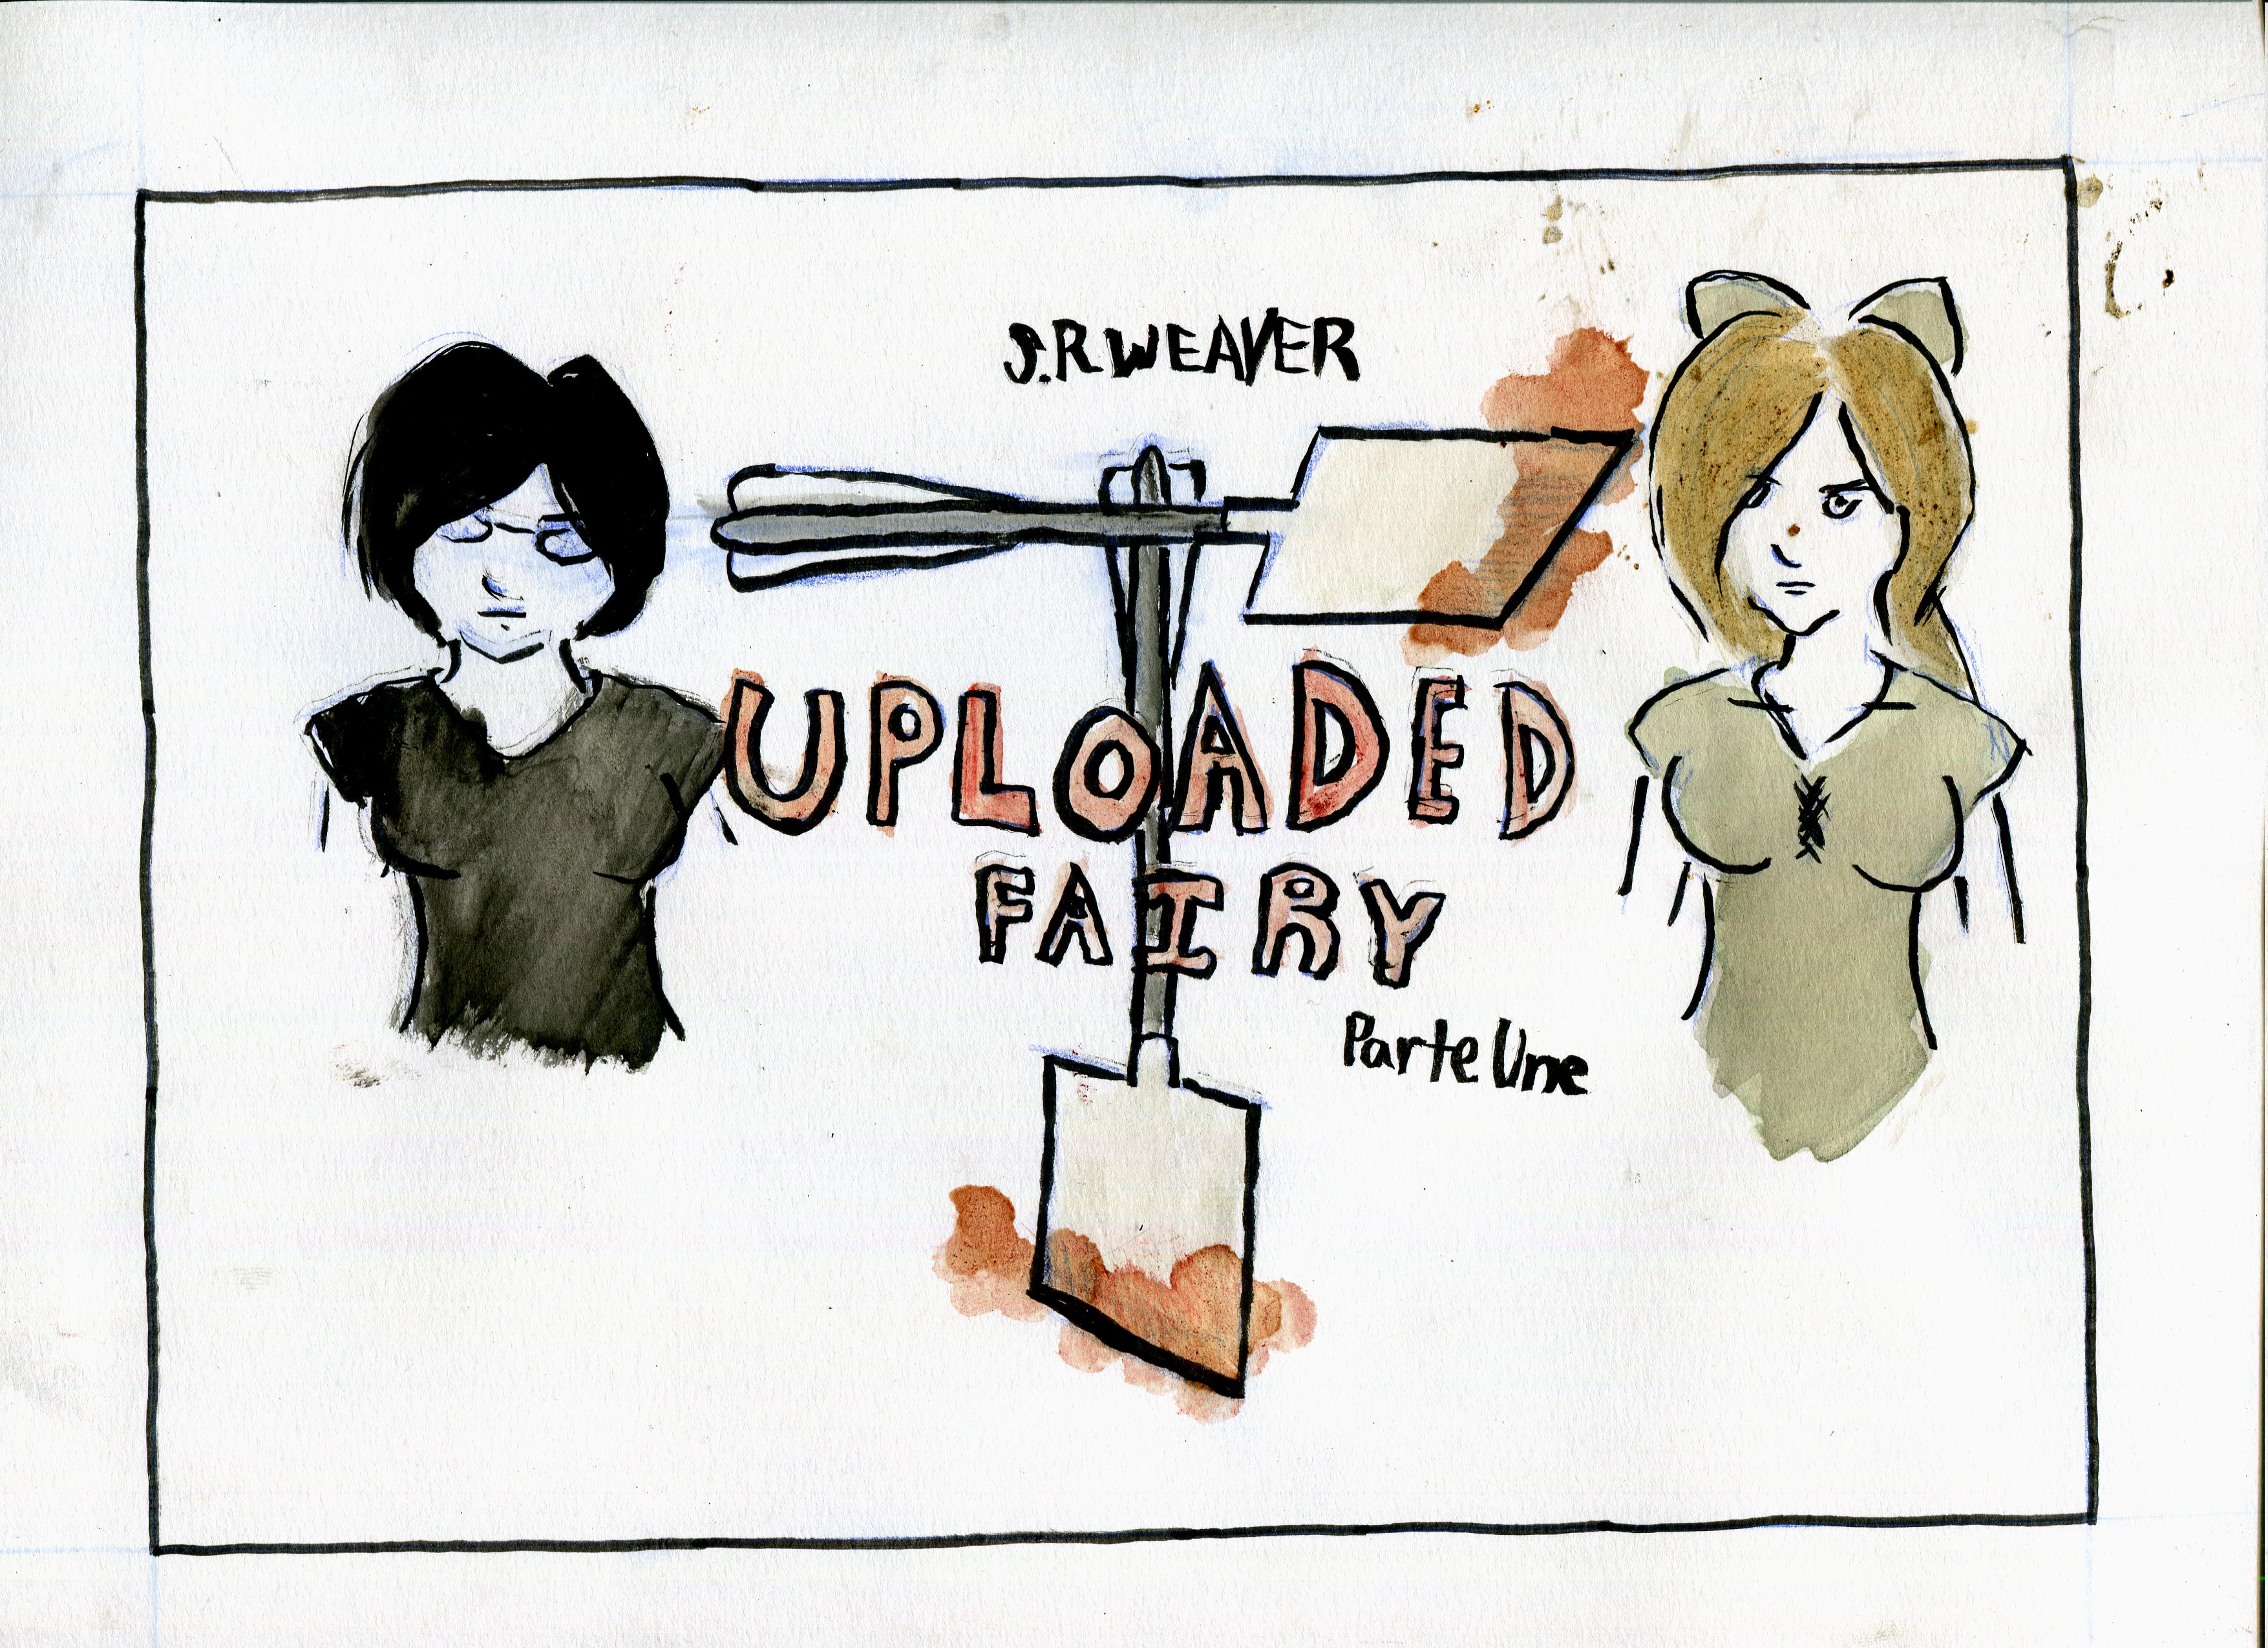 S.R.WEAVER
UPLOADED
FAIRY
Parte Une